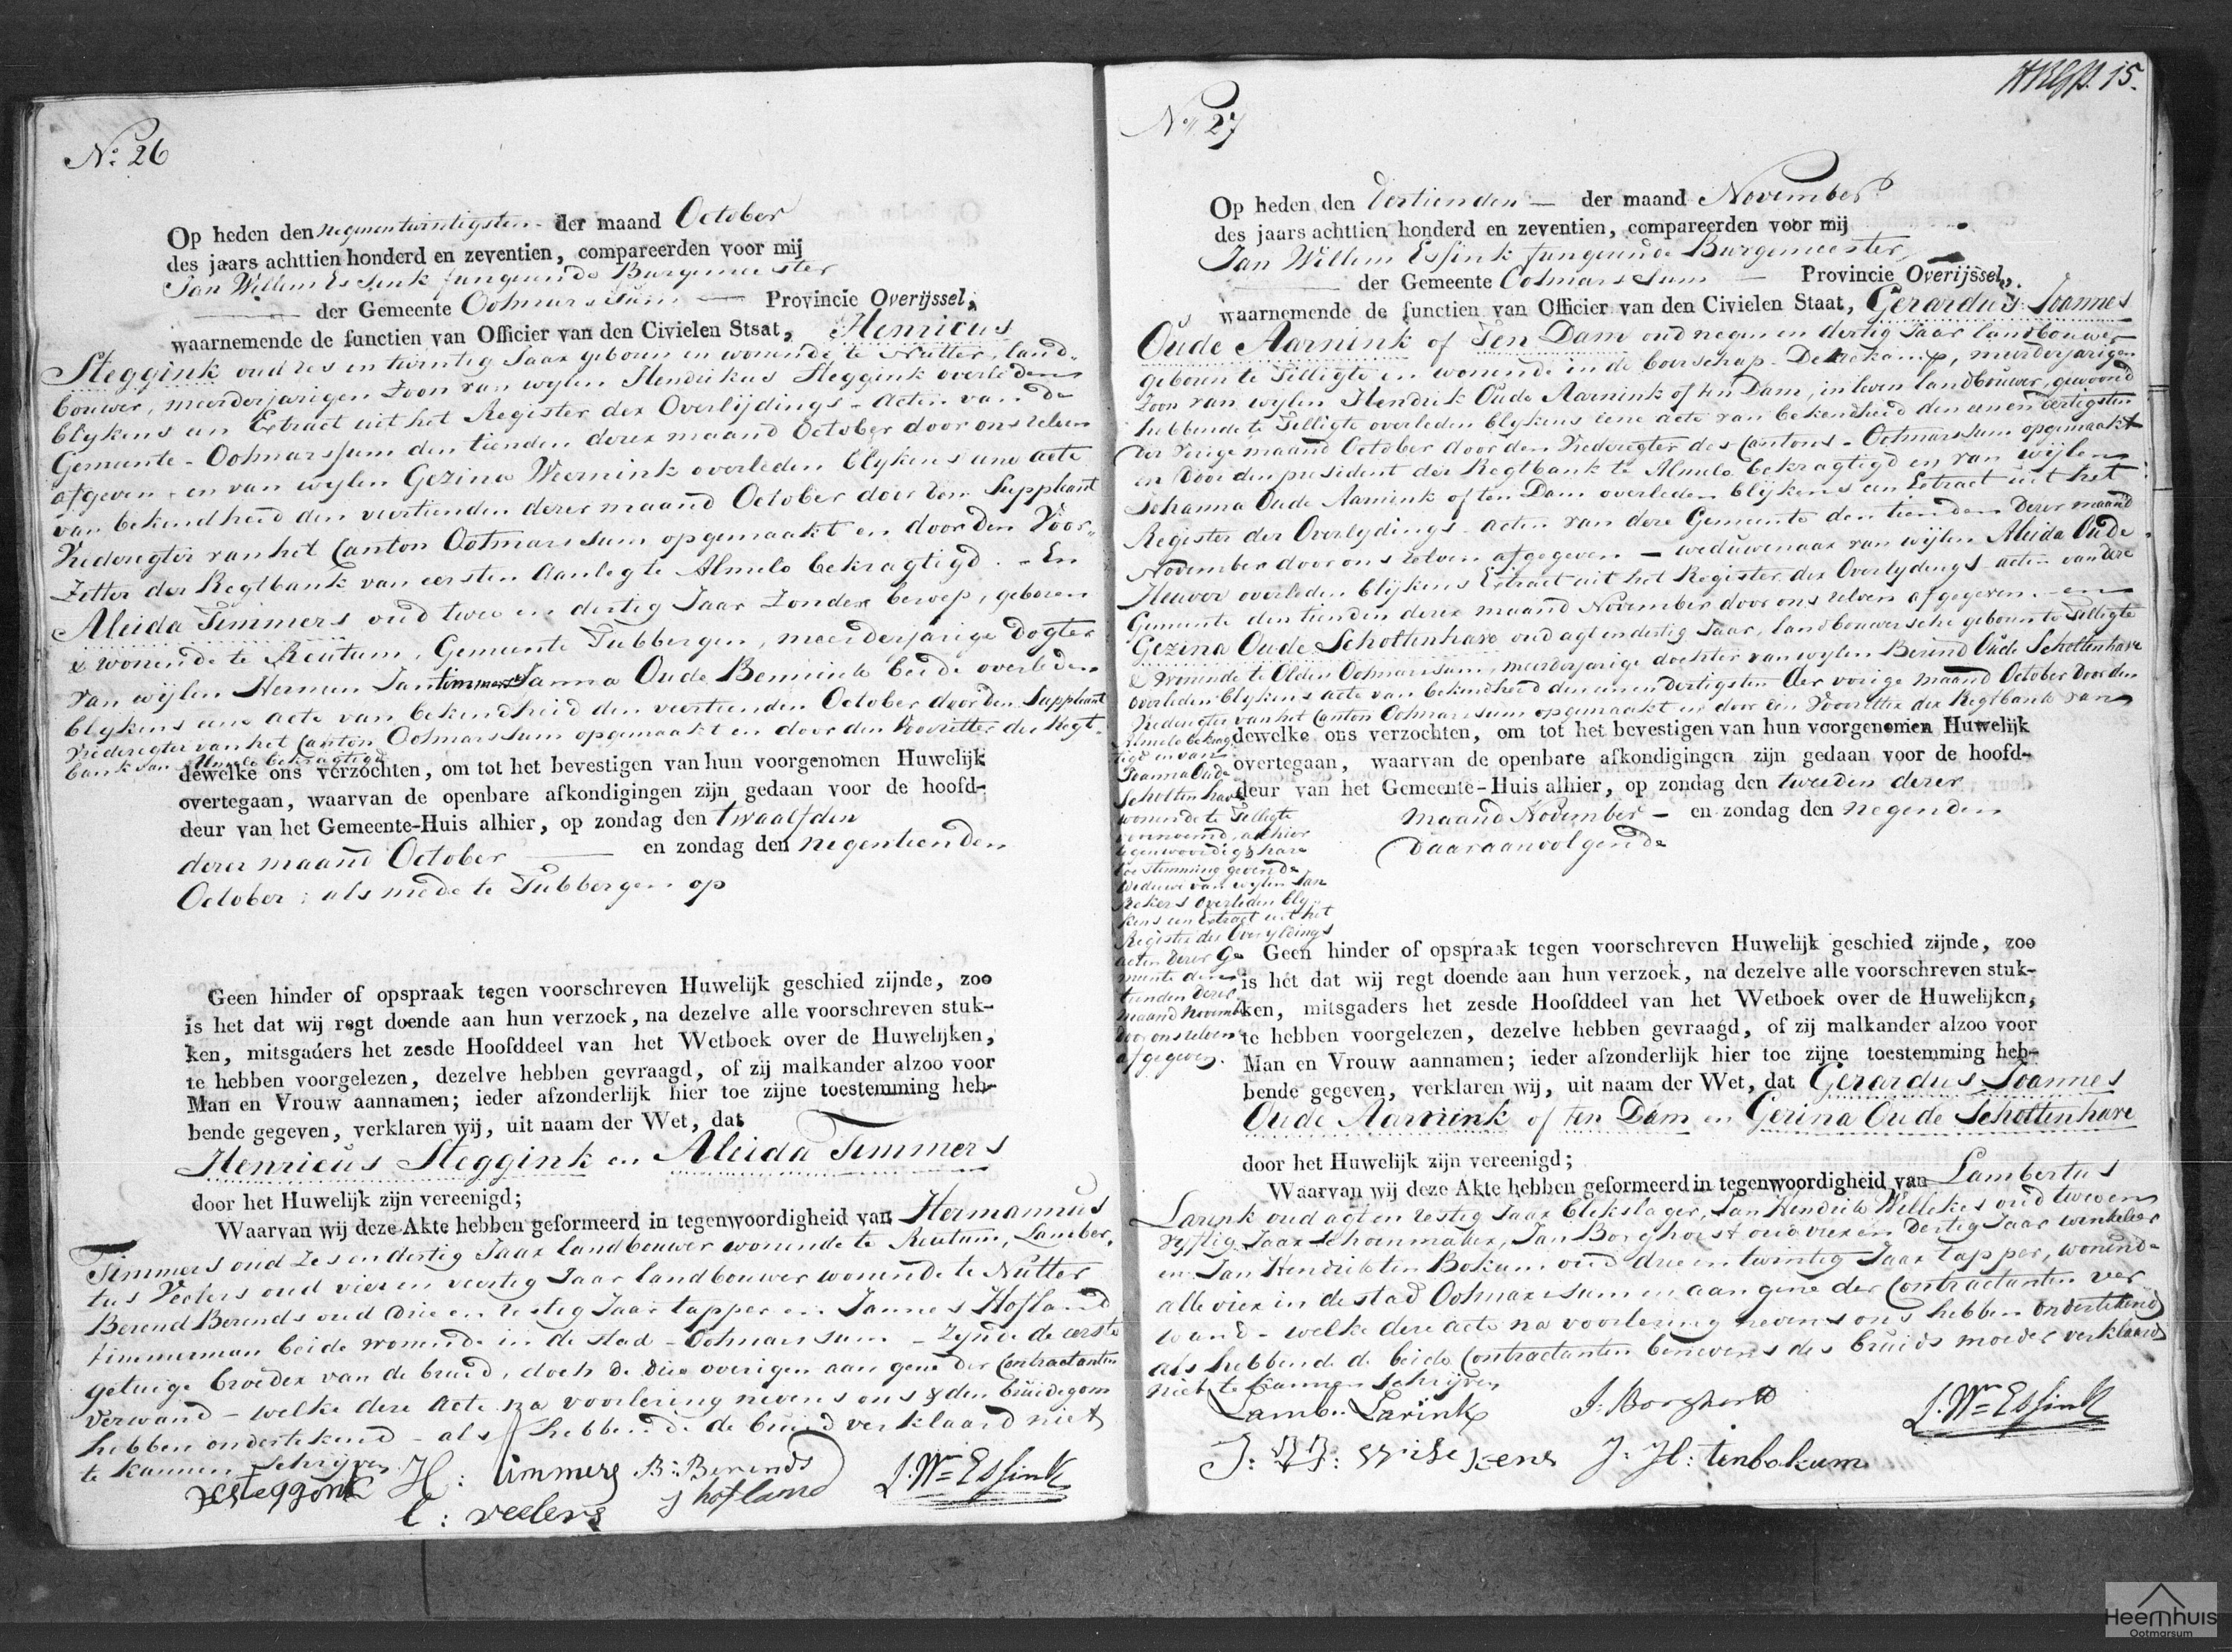 No: 26
Op heden den negenentwintigsten der maand October
des jaars achttien honderd en zeventien, compareerden voor mij
Jan Willem Essink fungeerende Burgemeester
der Gemeente Ootmarssum Provincie Overijssel,
waarnemende de functien van Officier van den Civielen Stsat, Henricus
Steggink oud zes en twintig Jaar geboren en wonende te Nutter, land-
bouwer, meerderjarigen Zoon van wylen Hendrikus Steggink overleden
blykens een Extract uit het Register der Overlijdings-Acten van de
Gemeente-Ootmarssum den tienden dezer maand October door ons zelven
afgeven, en van wylen Gezina Weernink overleden blykens eene acte
van bekendheid den veertienden dezer maand October door den Suppleant
Vrederegter van het Canton Ootmarssum opgemaakt en door den Voor-
zitter der Regtbank van eersten Aanleg te Almelo bekragtigd. - En
Aleida Timmers oud twee en dertig Jaar Zonder beroep, geboren
& wonende te Reutum, Gemeente Tubbergen, meerderjarige Dogter
van wijlen Herman Jan timmers & Janna Oude Bennink beide overleden
blykens eene acte van bekendheid den veertienden October door den Suppleant
Vrederegter van het Canton Ootmarssum opgemaakt en door den Voorzitter der Regt-
bank van Almelo bekragtigd
dewelke ons verzochten, om tot het bevestigen van hun voorgenomen Huwelijk
overtegaan, waarvan de openbare afkondigingen zijn gedaan voor de hoofd-
deur van het Gemeente-Huis alhier, op zondag den twaalfden
dezer maand October en zondag den negentienden
October; als mede te Tubbergen op
Geen hinder of opspraak tegen voorschreven Huwelijk geschied zijnde, zoo
is het dat wij regt doende aan hun verzoek, na dezelve alle voorschreven stuk-
ken, mitsgaders het zesde Hoofddeel van het Wetboek over de Huwelijken,
te hebben voorgelezen, dezelve hebben gevraagd, of zij malkander alzoo voor
Man en Vrouw aannamen; ieder afzonderlijk hier toe zijne toestemming heb-
bende gegeven, verklaren wij, uit naam der Wet, dat
Henricus Steggink en Aleida Timmers
door het Huwelijk zijn vereenigd;
Waarvan wij deze Akte hebben geformeerd in tegenwoordigheid van Hermannus
Timmers oud zes en dertig Jaar landbouwer wonende te Reutum, Lamber-
tus Veelers oud vier en veertig Jaar landbouwer wonende te Nutter
Berend Berends oud drie en zestig Jaar tapper en Jannes Hofland
timmerman beide wonende in de stad-Ootmarssum - Zijnde de eerste
getuige broeder van de bruid, doch de drie overigen aan gene der Contractanten
verwand - welke deze Acte na voorlezing nevens ons & den bruidegom
hebben ondertekend - als hebbende de bruid verklaard niet
te kunnen schrijven
H Steggink H: timmers B: Berends J. Wm Essink
L: veelers J hofland
15.
No 27
Op heden den dertienden der maand November
des jaars achttien honderd en zeventien, compareerden voor mij
Jan Willem Essink fungeerende Burgemeester
der Gemeente Ootmarssum Provincie Overijssel,
waarnemende de functien van Officier van den Civielen Staat, Gerardus Joannes
Oude Aarnink of Ten Dam oud negen en dertig Jaar landbouwer
geboren te Tilligte en wonende in de boerschap Denekamp, meerderjarigen
Zoon van wylen Hendrik Oude Aarnink of ten Dam, in leven landbouwer, gewoond
hebbende te Tilligte overleden blykens eene acte van bekendheid den een en dertigsten
der vorige maand October door den Vrederegter des Cantons-Ootmarssum opgemaakt
en door den president der Regtbank te Almelo bekragtigd en van wijlen
Johanna Oude Aarnink of ten Dam overleden blijkens een Extract uit het
Register der Overlydings-acten van deze Gemeente den tienden dezer maand
November door ons zelven afgegeven - weduwenaar van wijlen Aleida Oude
Heuver overleden blijkens Extract uit het Register der Overlydings-acten van deze
Gemeente den tienden dezer maand November door ons zelven afgegeven. - en
Gezina Oude Scholtenhave oud agt en dertig Jaar, landbouwersche geboren te Tilligte
& wonende te Olden Ootmarssum, meerderjarige dochter van wylen Berend Oude Scholtenhave
overleden blykens acte van bekendheid den een en dertigsten der vorige maand October door den
Vrederegter van het Canton Ootmarssum opgemaakt en door den Voorzitter der Regtbank van
Almelo bekrag-
tigd en van
Joanna Oude
Scholtenhave
wonende te Tilligte
voornoemd, alhier
tegenwoordig & hare
toestemming gevende
Weduwe van wylen Jan
Bekers overleden bly-
kens een Extract uit het
Register der Overlydings
acten dezer Ge-
meente den
tienden dezer
maand November
door ons zelven
afgegeven.
dewelke ons verzochten, om tot het bevestigen van hun voorgenomen Huwelijk
overtegaan, waarvan de openbare afkondigingen zijn gedaan voor de hoofd-
deur van het Gemeente-Huis alhier, op zondag den tweeden dezer
maand November - en zondag den negenden
daaraanvolgende
Geen hinder of opspraak tegen voorschreven Huwelijk geschied zijnde, zoo
is het dat wij regt doende aan hun verzoek, na dezelve alle voorschreven stuk-
ken, mitsgaders het zesde Hoofddeel van het Wetboek over de Huwelijken,
te hebben voorgelezen, dezelve hebben gevraagd, of zij malkander alzoo voor
Man en Vrouw aannamen; ieder afzonderlijk hier toe zijne toestemming heb-
bende gegeven, verklaren wij, uit naam der Wet, dat Gerardus Joannes
Oude Aarnink of ten Dam en Gezina Oude Scholtenhave
door het Huwelijk zijn vereenigd;
Waarvan wij deze Akte hebben geformeerd in tegenwoordigheid van Lambertus
Larink oud agt en zestig Jaar blekslager, Jan Hendrik Willekes oud twee en
vyftig Jaar schoenmaker, Jan Borghorst oud vier en dertig Jaar winkelier
en Jan Hendrik ten Bokum oud drie en twintig Jaar tapper, wonende
alle vier in de stad Ootmarssum en aan gene der Contractanten ver-
wand - welke deze acte na voorlezing nevens ons hebben ondertekend
als hebbende de beide Contractanten benevens des bruids moeder verklaard
niet te kunnen schrijven
Lamb: Larink J: Borghorst J. Wm Essink
J: H: J: H: tenbokum
Heemhuis
Ootmarsum